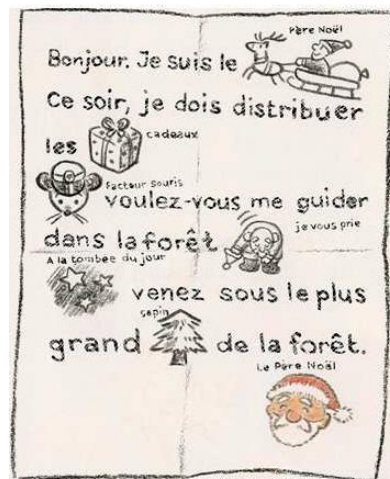 Père Noël
Bonjour. Je suis le
Ce soir, je dois distribuer
les
cadeaux
Facteur souris
voulez-vous me guider
dans la forêt
je vous prie
A la tombée du jour
venez sous le plus
sapin
grand de la forêt.
Le Père Noël